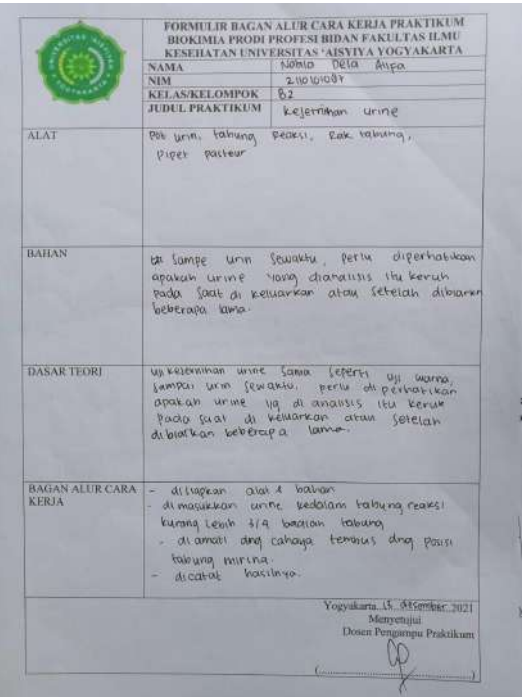 FORMULIR BAGAN ALUR CARA KERJA PRAKTIKUM
BIOKIMIA PRODI PROFESI BIDAN FAKULTAS ILMU
KESEHATAN UNIVERSITAS 'AISYIYA YOGYAKARTA
UNIVERSITAS 'AISYIYAH
YOGYAKARTA
NAMA Nabila Dela Alifa
NIM 2110101087
KELAS/KELOMPOK B2
JUDUL PRAKTIKUM kejernihan urine
ALAT Pot urin, tabung Reaksi, Rak tabung,
Pipet pasteur
BAHAN Sampe urin sewaktu, perlu diperhatikan
apakah urine yang dianalisis itu keruh
pada saat di keluarkan atau setelah dibiarkan
beberapa lama.
DASAR TEORI uji kejernihan urine sama seperti uji warna,
sampai urin sewaktu, perlu diperhatikan
apakah urine yg di analisis itu keruh
pada saat di keluarkan atau setelah
dibiarkan beberapa lama.
BAGAN ALUR CARA KERJA - disiapkan alat & bahan
- dimasukkan urine kedalam tabung reaksi
kurang lebih 3/4 bagian tabung
- diamati dng cahaya tembus dng posisi
tabung miring.
- dicatat hasilnya.
Yogyakarta, 15 desember 2021
Menyetujui
Dosen Pengampu Praktikum
(..........................)